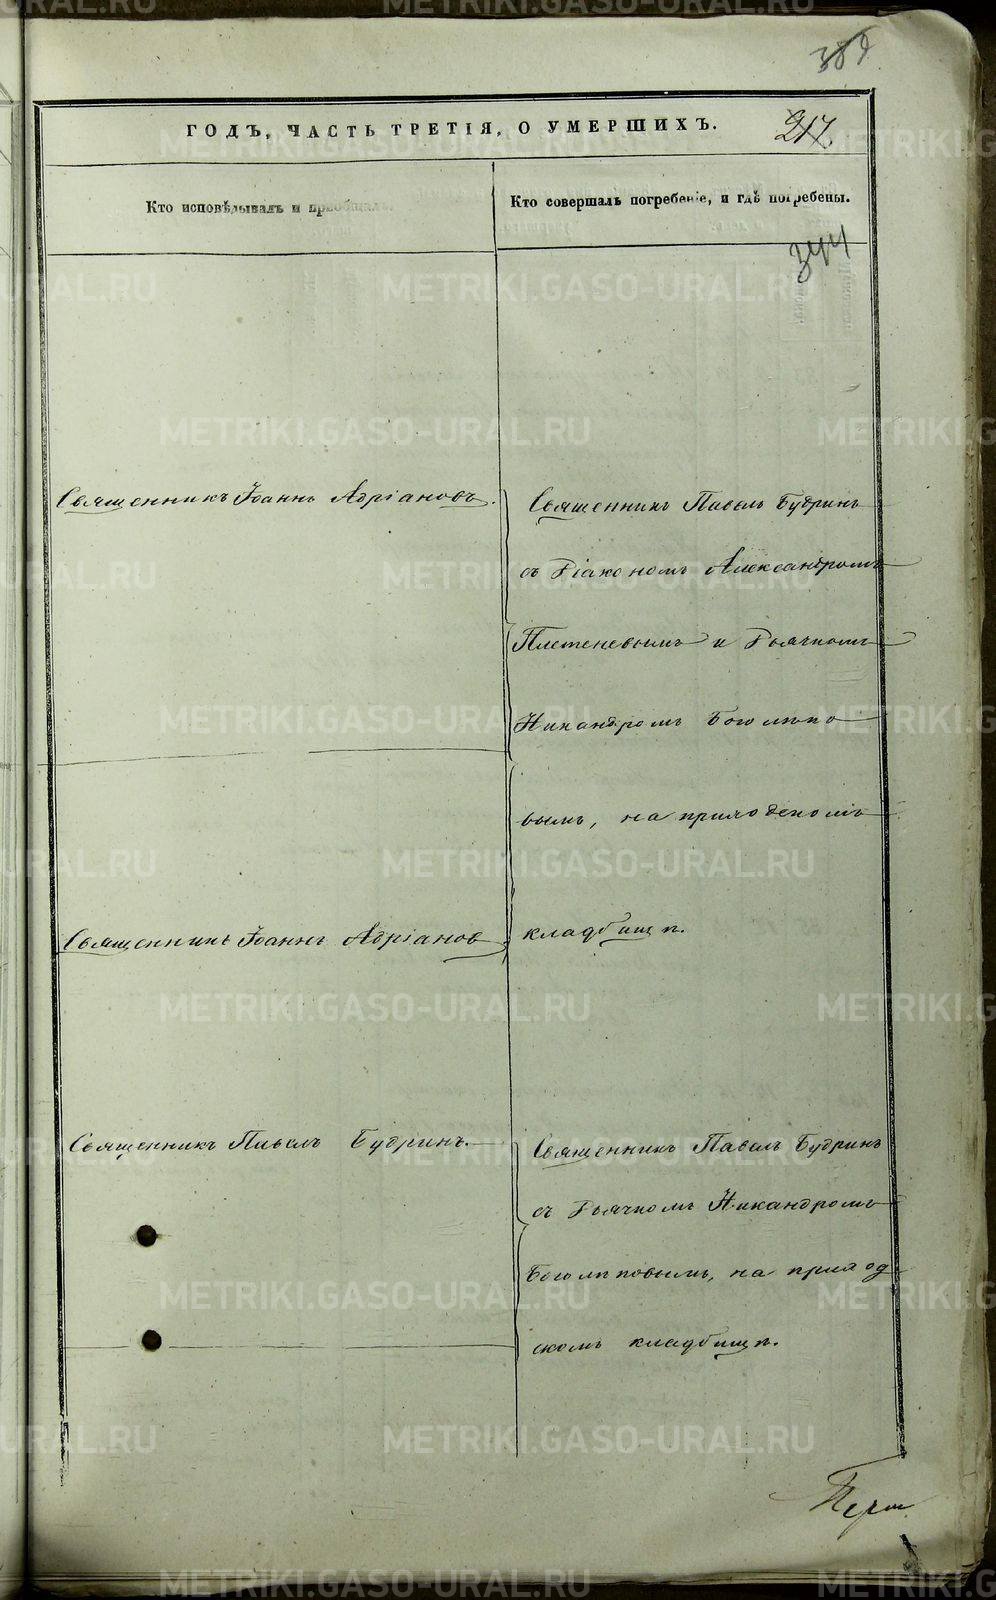 ГОДЪ, ЧАСТЬ ТРЕТІЯ, О УМЕРШИХЪ.
217.
Кто исповѣдывалъ и пріобщалъ.
Кто совершалъ погребеніе, и гдѣ погребены.
344
Священникъ Іоаннъ Адріановъ.
Священникъ Іоаннъ Адріановъ
Священникъ Павелъ Будринъ.
Священникъ Павелъ Будринъ
съ Діакономъ Александромъ
Плетеневымъ и Дьячкомъ
Никандромъ Боголѣпо
вымъ, на приходскомъ
кладбищѣ.
Священникъ Павелъ Будринъ
съ Дьячкомъ Никандромъ
Боголѣповымъ, на приход
скомъ кладбищѣ.
METRIKI.GASO-URAL.RU